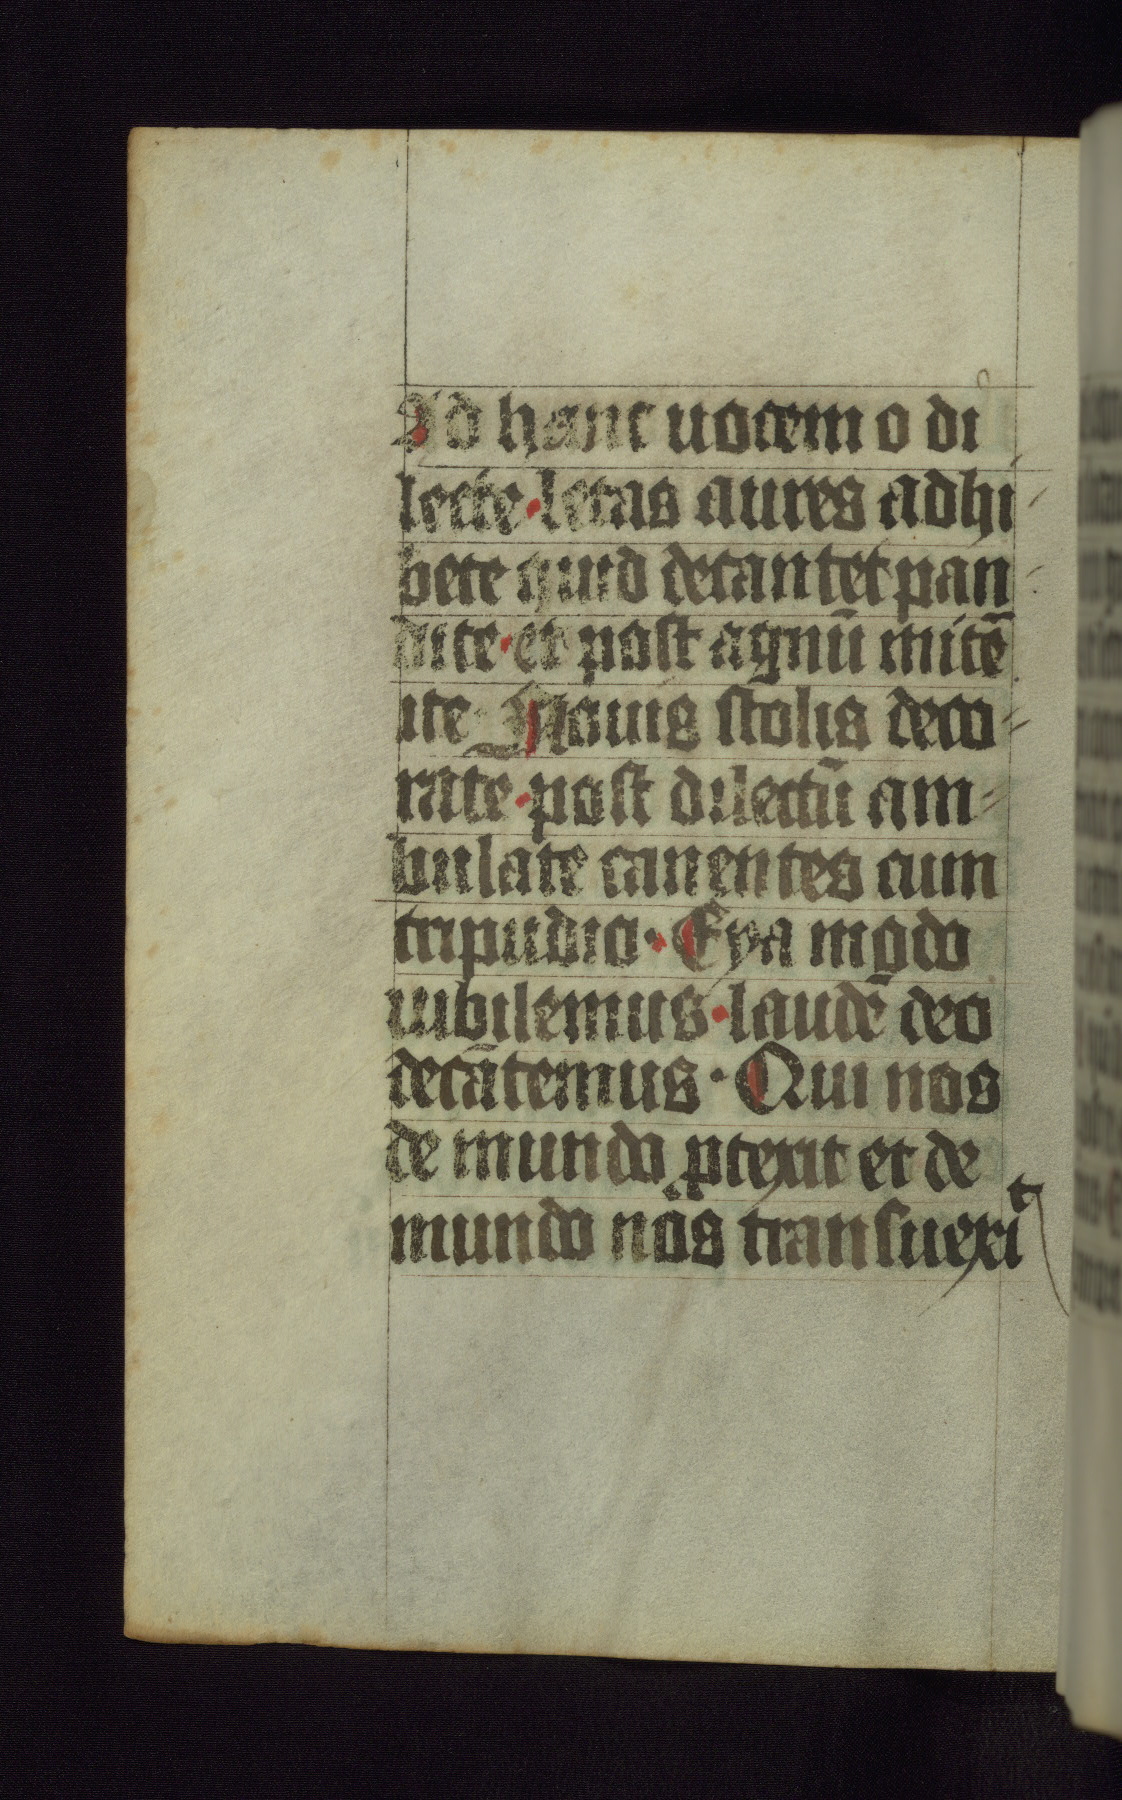 Ad hanc uocem o di
lecte · letas aures adhi
bete quid decantet pan
dite · et post agnū mitē
ite Nouis stolis deco
rate · post dilectū am
bulate canentes cum
tripudio · Eya modo
iubilemus · laudē deo
decātemus · Qui nos
de mundo ptexit et de
mundo nos transuexit